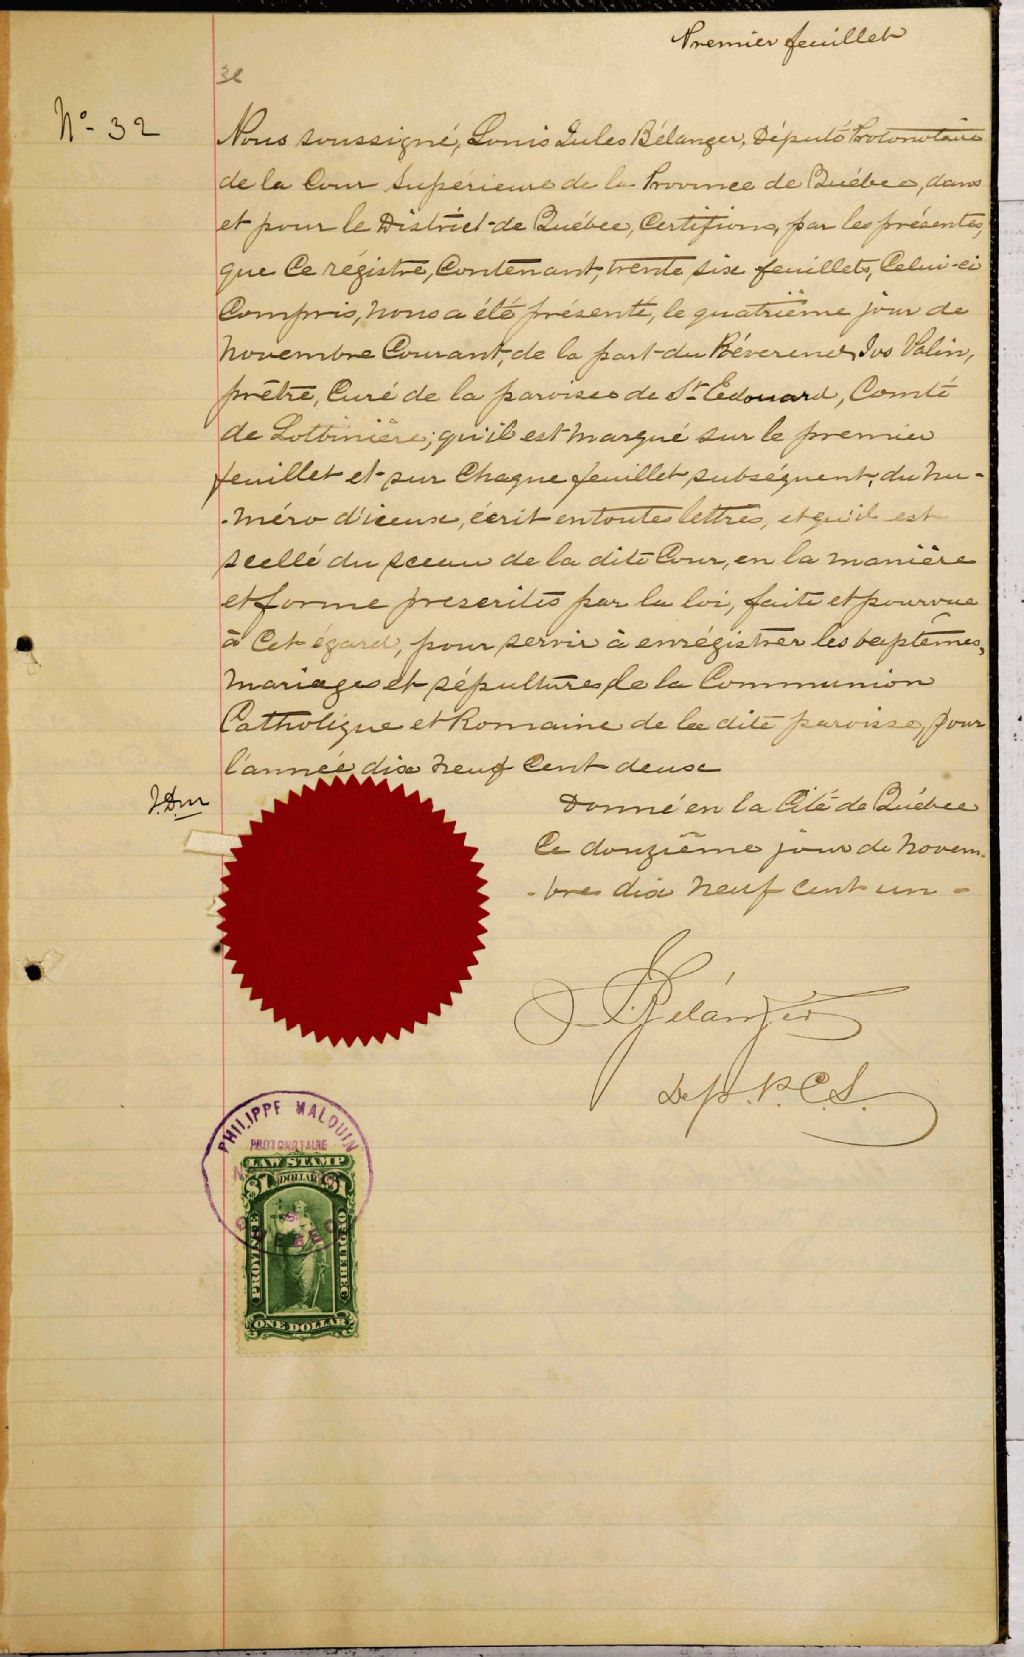 Premier feuillet
32
No- 32
Nous soussigné, Louis Jules Bélanger, Député Protonotaire
de la Cour Supérieure de la Province de Québec, dans
et pour le District de Québec, Certifions, par les présentes,
que Ce régistre, Contenant, trente six feuillets, Celui-ci
Compris, nous a été présenté, le quatrième jour de
Novembre Courant, de la part du Révérend Jos Valin,
prêtre, Curé de la paroisse de St Edouard, Comté
de Lotbinière; qu'il est marqué sur le premier
feuillet et sur Chaque feuillet subséquent, du nu-
-méro d'iceux, écrit en toutes lettres, et qu'il est
scellé du sceau de la dite Cour, en la manière
et forme prescrites par la loi, faite et pourvue
à Cet égard, pour servir à enrégistrer les baptêmes,
Mariages et sépultures, de la Communion
Catholique et Romaine de la dite paroisse, pour
l'année dix neuf Cent deux
Donné en la Cité de Québec
Ce douzième jour de Novem-
-bre dix neuf cent un -
Bélanger
Dep. P. C. S.
PHILIPPE MALOUIN
PROTONOTAIRE
QUEBEC
LAW STAMP
$1 DOLLAR $1
PROVINCE
OF QUEBEC
ONE DOLLAR